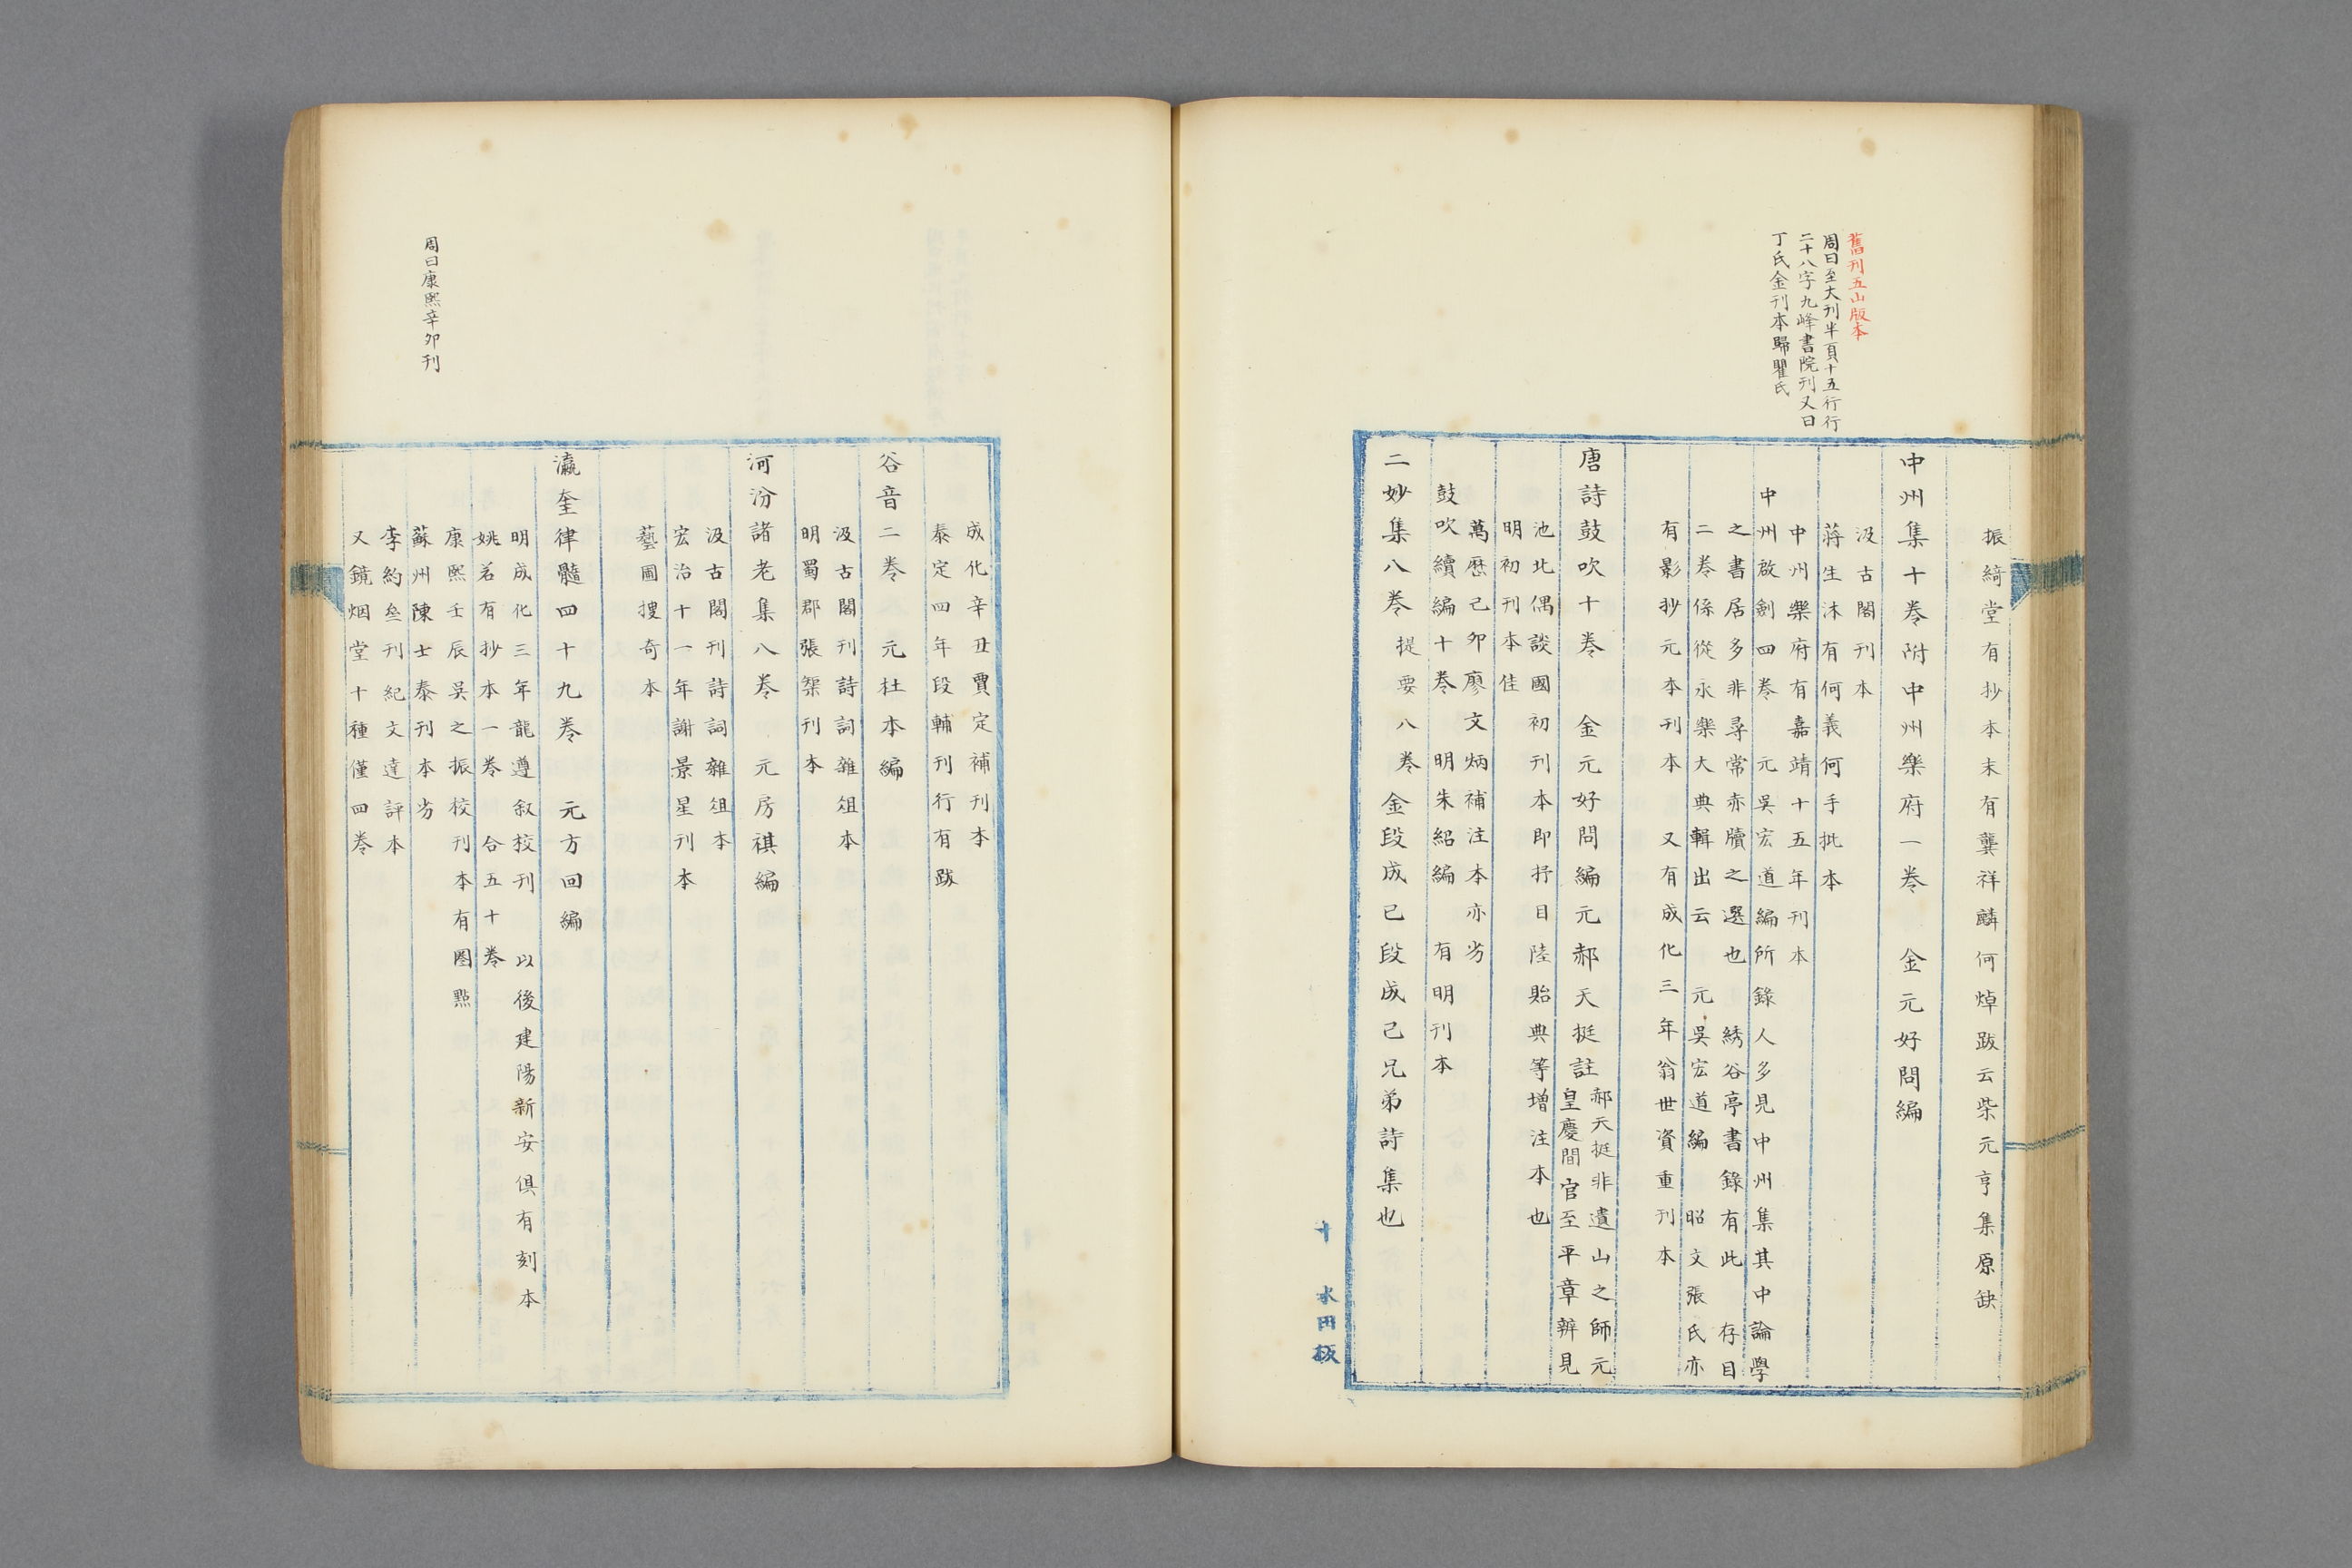 舊刊五山版本
周曰至大刊半頁十五行行
二十八字九峰書院刊又曰
丁氏金刊本歸瞿氏
振綺堂有抄本末有龔祥麟何焯跋云柴元亨集原缺
中州集十卷附中州樂府一卷　金元好問編
汲古閣刊本
蔣生沐有何義何手批本
中州樂府有嘉靖十五年刊本
中州啟劄四卷　元吳宏道編所錄人多見中州集其中論學
之書居多非尋常赤牘之選也　綉谷亭書錄有此　存目
二卷係從永樂大典輯出云　元吳宏道編　昭文張氏亦
有影抄元本刊本　又有成化三年翁世資重刊本
唐詩鼓吹十卷　金元好問編元郝天挺註
郝天挺非遺山之師元
皇慶間官至平章辨見
池北偶談國初刊本即抒目陸貽典等增注本也
明初刊本佳
萬曆己卯廖文炳補注本亦劣
鼓吹續編十卷　明朱紹編　有明刊本
二妙集八卷　提要八卷　金段成已段成己兄弟詩集也
十　水田板
成化辛丑賈定補刊本
泰定四年段輔刊行有跋
谷音二卷　元杜本編
汲古閣刊詩詞雜俎本
明蜀郡張榘刊本
河汾諸老集八卷　元房祺編
汲古閣刊詩詞雜俎本
宏治十一年謝景星刊本
藝圃搜奇本
瀛奎律髓四十九卷　元方回編
明成化三年龍遵叙校刊　以後建陽新安俱有刻本
姚若有抄本一卷　合五十卷
康熙壬辰吳之振校刊本有圈點
蘇州陳士泰刊本劣
李約叁刊紀文達評本
又鏡烟堂十種僅四卷
周曰康熙辛卯刊